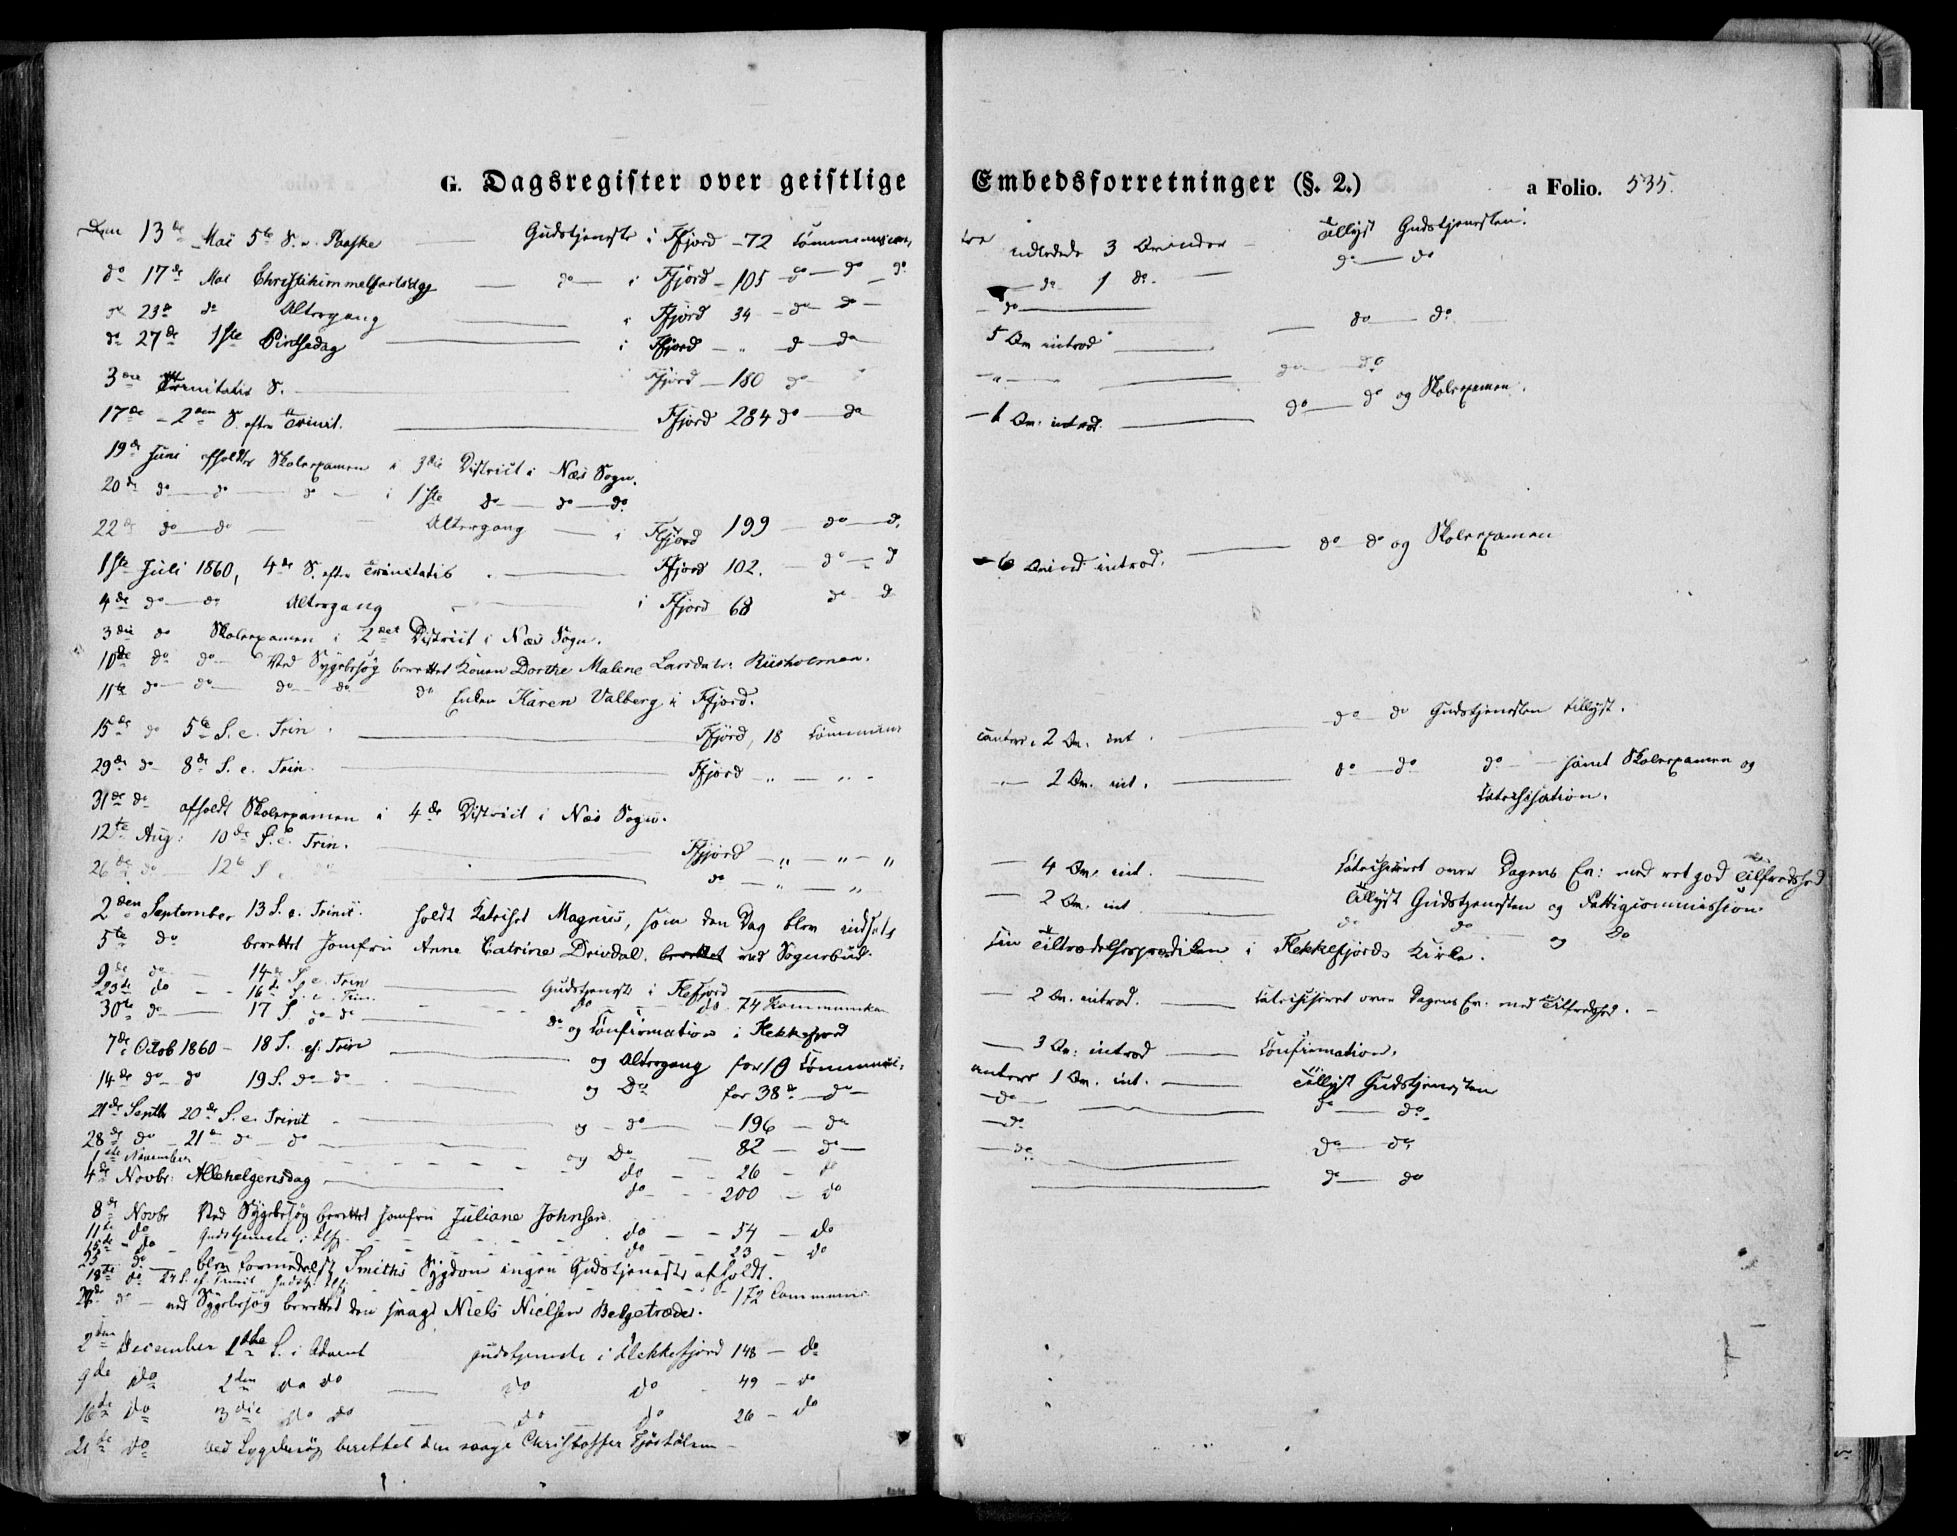 G. Dagsregister over geistlige Embedsforretninger (§. 2.) a Folio. 535.
Den 13de Mai 5te S. e. Paaske Gudstjeneste i Ffjord - 72 Communican
do 17de Mai Christihimmelfartsdag do i Ffjord - 105 do do do
do 23de do Altergang i Ffjord 34 - do do
do 27de 1ste Pintsedag i Ffjord - " do do
3die Trinitatis S. Ffjord - 180 do
17de - 2den S. efter Trinit. Ffjord 284 do do
19de Juni afholdtes Skolexamen i 3die District i Næs Sogn.
20de do do do i 1ste do do do
22de do do Altergang i Ffjord 199 do d.
1ste Juli 1860, 4de S. efter Trinitatis Ffjord 102. do d
4de do do Altergang i Ffjord 68 do d
3die do Skolexamen i 2det District i Næs Sogn.
10de do do Ved Sygebesøg berettet Konen Dorthe Malene Larsdatr:
11te do do do do do Enken Karen Valberg i Ffjord.
15de do 5te S. e. Trin. Ffjord, 18 Communi
29de do 8de S. e. Trin. Ffjord - " - "
31de do afholdt Skolexamen i 4de District i Næs Sogn.
12te Aug: 10de S. e. Trin. Ffjord - " - " - "
26de do 12te S. do - " - "
2den September 13 S. e. Trinit. holdt Katechet Magnus, som den Dag blev indsat
5te do berettet Jomfru Anne Catrine Drivdal, berettet ved Sognebud.
9de do 14de S. e. Trin Gudstjeneste i Flefjord
23de do 16de S. e. Trin. do do. 74 Kommunikan
30te do 17 S. do do do og Confirmation i Flekkefjord
7de Octob 1860 - 18 S. ef. Trin og Altergang for 10 Communi.
14de do do 19 S. do do og Do for 38 do
21de Septb 20de S. e. Trinit og do 196 - do
28de do 21de do do og Do 82 - do
1ste November do 26
4de Novbr: Allehelgensdag do 200 - do
8de Novbr Ved Sygebesøg berettet Jomfru Juliane Johnsen
11te do Gudstjeneste i do 54 - do
15de do do 23 - do
25 do blev formedelst Smiths Sygdom ingen Gudstjeneste afholdt.
18de do 24 S. ef. Trinit 172 Communi
do ved Sygebesøg berettet den svage Niels Nielsen
2den December 1ste S. i Advent gudstjeneste i Flekkefjord 148 - do
9de do 2den do do do do 49 - do
16de do 3die do do do do 26 - do
21de do ved Sygebesøg berettet den svage Christoffer
indledede 3 Qvinder Tillyst Gudstjenesten.
do 1 do. do do
do
5 Qv introd do do
do
- 1 Qv. introd. do do og Skolexamen.
- 6 Qvind introd. do do og Skolexamen
2 Qv. int. do do Gudstjenesten tillyst.
2 Qv. int. do do do samt Skolexamen og
Katechisation.
4 Qv. int. Katechiseret over Dagens Ev: med ret god Tilfredshed
2 Qv. int Tillyst Gudstjenesten og Fattigcommission
do do og Do
sin Tiltrædelsesprædiken i Flekkefjords Kirke.
2 Qv. introd. Katechiseret over Dagens Ev: med Tilfredshed.
3 Qv: introd Confirmation.
1 Qv. int. Tillyst Gudstjenesten
do do do
do
do do do
do do